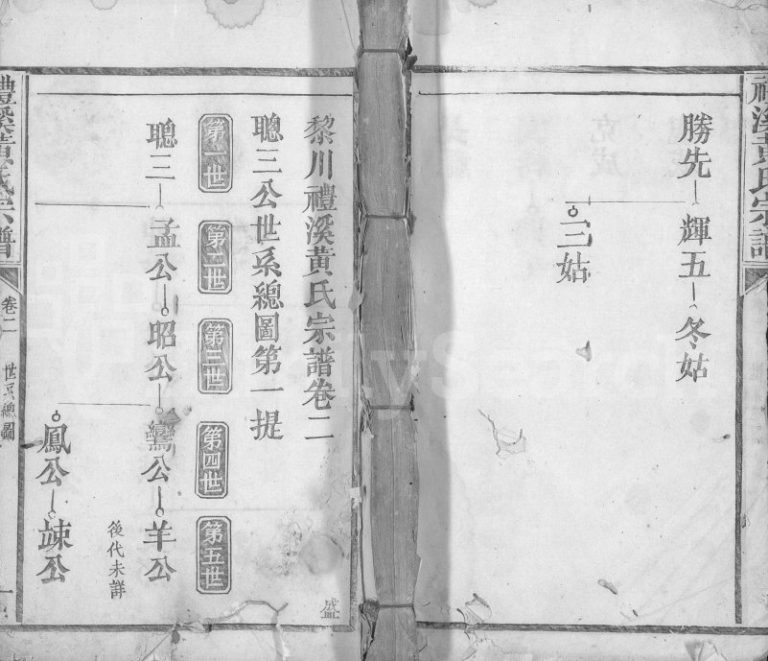 禮溪黃氏宗譜
勝先 輝五 冬姑
三姑
黎川禮溪黃氏宗譜卷二
盛
聰三公世系總圖第一提
第一世 第二世 第三世 第四世 第五世
聰三 孟公 昭公 鸞公 羊公
後代未詳
鳳公 竦公
禮溪黃氏宗譜 卷二 世系總圖